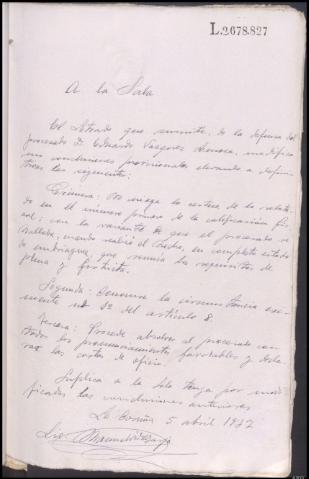 L.2678.827
A la Sala
El Letrado que suscribe, de la defensa del
procesado D. Eduardo Vazquez, modifica
sus conclusiones provisionales elevando a defini-
tivas las siguientes:
Primera: Se niega la certeza de lo relata-
do en el número primero de la calificación fis-
cal; con la variante de que el procesado se
hallaba, cuando realizó el hecho, en completo estado
de embriaguez, que reunía los requisitos de
plena y fortuita.
Segunda: Concurre la circunstancia exi-
mente nº 2º del artículo 8.
Tercera: Procede absolver al procesado con
todos los pronunciamientos favorables y decla-
rar las costas de oficio.
Suplica a la Sala tenga por modi-
ficadas las conclusiones anteriores
La Coruña 5 abril 1972
Lic.